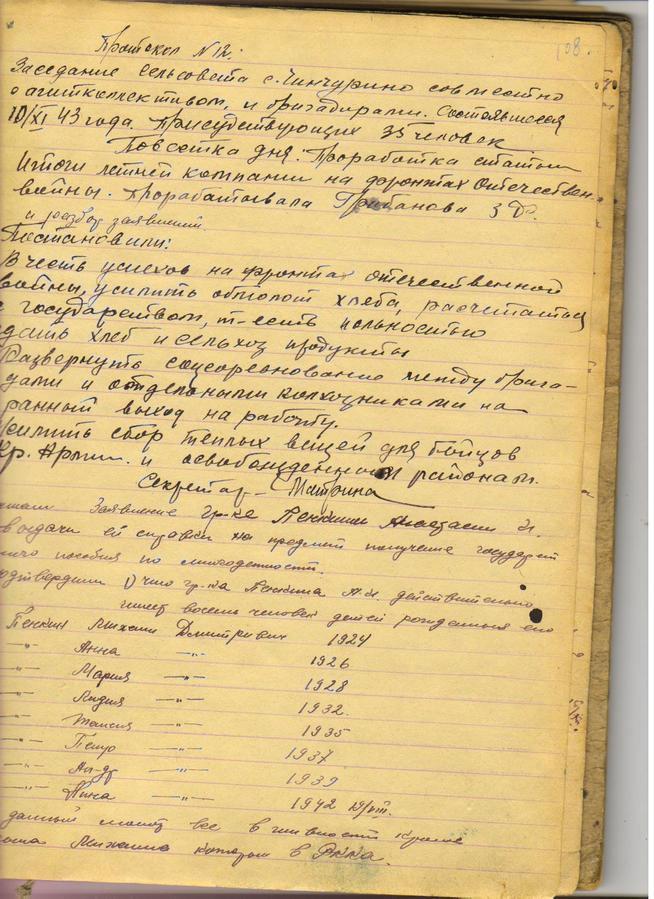 108.
Протокол N 12.
Заседание сельсовета с. Чинчурино совместно
с агитколлективом, и бригадирами. Состоявшееся
10/XI 43 года. Присудствующих 35 человек
Повестка дня: Проработка статьи
Итоги летней компании на фронтах Отечествен.
войны. Прорабатывала Грибанова З Ф.
и разбор заявлений.
Постановили:
В честь успехов на фронтах отечественной
войны, усилить обмолот хлеба, расчетаться
с государством, т-есть польностью
дать хлеб и сельхоз продукты
Развернуть соцсоревнование между брига-
дами и отдельными колхозниками на
ранный выход на работу.
усилить сбор теплых вещей для бойцов
Кр. Армии. и освобожденным районам.
Секретар - Матрина
Заявление гр-ке Пенкини Анастасии И.
выдачи ей справки на предмет получение государст
пособия по многодетности.
1) что гр-ка Пенкина А.И. действительно
имеет восемь человек детей рожденных
Пенкин Михаил Дмитриевич 1924
-"- Анна -"- 1926
-"- Мария -"- 1928
-"- Лидия -"- 1932.
-"- Таисия -"- 1935
-"- Петр -"- 1937
-"- Ал-др -"- 1939
-"- Нина -"- 1942
данный все в кроме
Михаила который в РККА.